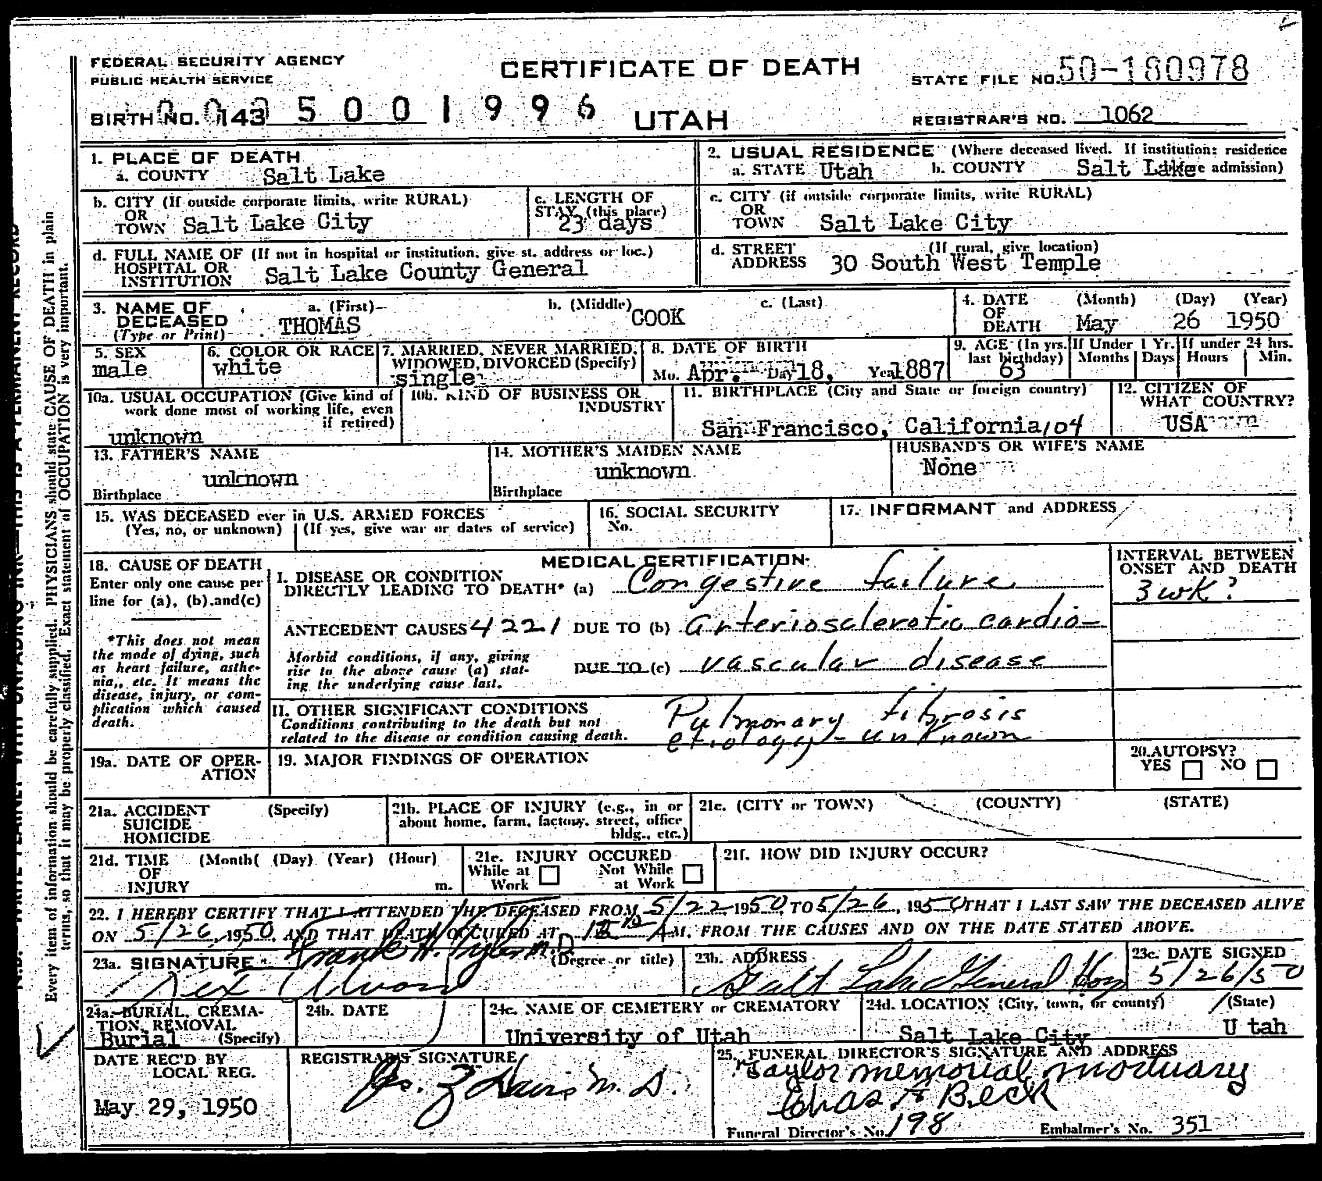 FEDERAL SECURITY AGENCY
PUBLIC HEALTH SERVICE
CERTIFICATE OF DEATH
STATE FILE NO. 50-180978
BIRTH NO. 143 5001996
UTAH
REGISTRAR'S NO. 1062
1. PLACE OF DEATH
a. COUNTY Salt Lake
2. USUAL RESIDENCE (Where deceased lived. If institution: residence
a. STATE Utah b. COUNTY Salt Lake admission)
b. CITY (If outside corporate limits, write RURAL)
OR
TOWN Salt Lake City
c. LENGTH OF
STAY (this place)
23 days
c. CITY (if outside corporate limits, write RURAL)
OR
TOWN Salt Lake City
d. FULL NAME OF (If not in hospital or institution, give st. address or loc.)
HOSPITAL OR
INSTITUTION Salt Lake County General
d. STREET (If rural, give location)
ADDRESS 30 South West Temple
3. NAME OF a. (First) b. (Middle) c. (Last)
DECEASED
(Type or Print) THOMAS COOK
4. DATE (Month) (Day) (Year)
OF
DEATH May 26 1950
5. SEX
male
6. COLOR OR RACE
white
7. MARRIED, NEVER MARRIED,
WIDOWED, DIVORCED (Specify)
single
8. DATE OF BIRTH
Mo. Apr. Day 18, Year 1887
9. AGE (In yrs. last birthday)
63
If Under 1 Yr.
Months Days
If under 24 hrs.
Hours Min.
10a. USUAL OCCUPATION (Give kind of
work done most of working life, even
if retired)
unknown
10b. KIND OF BUSINESS OR
INDUSTRY
11. BIRTHPLACE (City and State or foreign country)
San Francisco, California 104
12. CITIZEN OF
WHAT COUNTRY?
USA
13. FATHER'S NAME
unknown
Birthplace
14. MOTHER'S MAIDEN NAME
unknown
Birthplace
HUSBAND'S OR WIFE'S NAME
None
15. WAS DECEASED ever in U.S. ARMED FORCES
(Yes, no, or unknown) (If yes, give war or dates of service)
16. SOCIAL SECURITY
No.
17. INFORMANT and ADDRESS
18. CAUSE OF DEATH
Enter only one cause per
line for (a), (b) and (c)
*This does not mean
the mode of dying, such
as heart failure, asthe-
nia, etc. It means the
disease, injury, or com-
plication which caused
death.
MEDICAL CERTIFICATION
I. DISEASE OR CONDITION
DIRECTLY LEADING TO DEATH* (a) Congestive failure
ANTECEDENT CAUSES 4221 DUE TO (b) arteriosclerotic cardio-
Morbid conditions, if any, giving
rise to the above cause (a) stat-
ing the underlying cause last.
DUE TO (c) vascular disease
II. OTHER SIGNIFICANT CONDITIONS
Conditions contributing to the death but not
related to the disease or condition causing death.
Pulmonary fibrosis
etiology - unknown
INTERVAL BETWEEN
ONSET AND DEATH
3 wk?
19a. DATE OF OPER-
ATION
19. MAJOR FINDINGS OF OPERATION
20. AUTOPSY?
YES NO
21a. ACCIDENT (Specify)
SUICIDE
HOMICIDE
21b. PLACE OF INJURY (e.g., in or
about home, farm, factory, street, office
bldg., etc.)
21c. (CITY or TOWN) (COUNTY) (STATE)
21d. TIME (Month) (Day) (Year) (Hour)
OF
INJURY m.
21e. INJURY OCCURED
While at Work Not While at Work
21f. HOW DID INJURY OCCUR?
22. I HEREBY CERTIFY THAT I ATTENDED THE DECEASED FROM 5/22 1950, TO 5/26, 1950 THAT I LAST SAW THE DECEASED ALIVE
ON 5/26, 1950, AND THAT DEATH OCCURED AT M, FROM THE CAUSES AND ON THE DATE STATED ABOVE.
23a. SIGNATURE Frank H. Tyler M.D. (Degree or title)
23b. ADDRESS
Salt Lake General Hosp
23c. DATE SIGNED
5/26/50
24a. BURIAL, CREMA-
TION, REMOVAL
Burial (Specify)
24b. DATE
24c. NAME OF CEMETERY or CREMATORY
University of Utah
24d. LOCATION (City, town, or county) (State)
Salt Lake City Utah
DATE REC'D BY
LOCAL REG.
May 29, 1950
REGISTRAR'S SIGNATURE
25. FUNERAL DIRECTOR'S SIGNATURE AND ADDRESS
Taylor memorial mortuary
Chas A Beck
Funeral Director's No. 198 Embalmer's No. 351
Every item of information should be carefully supplied. PHYSICIANS should state CAUSE OF DEATH in plain
terms, so that it may be properly classified. Exact statement of OCCUPATION is very important.